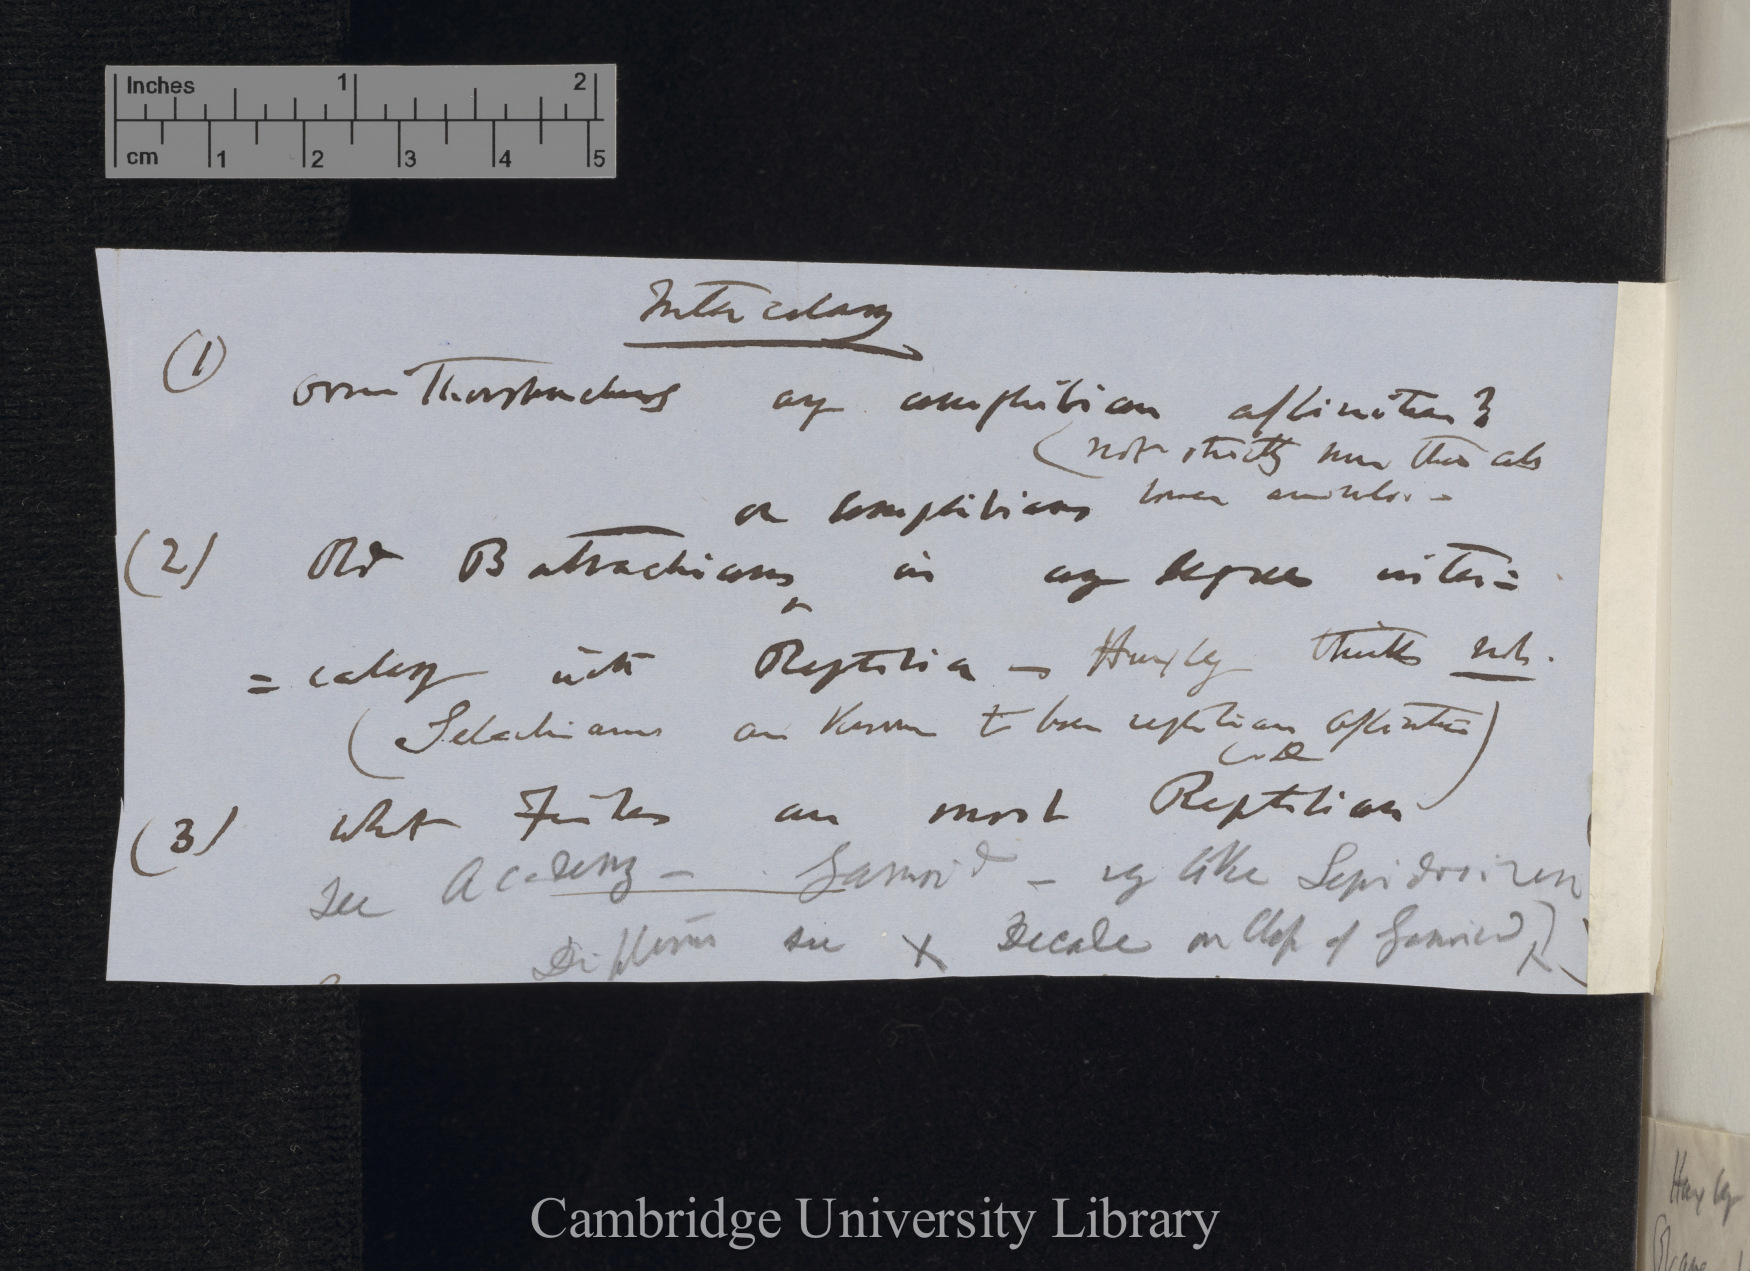 Inches 1 2
cm 1 2 3 4 5
Intercalary
(1) Ornithorhynchus any amphibian affinities?
(not strictly more than other
lower animals. —
or amphibians
(2) Old Batrachians ^ in any degree inter=
=calary with Reptilia — Huxley thinks not.
(Selachians are known to have reptilian affinities)
(3) What Fishes are most Reptilian
See Academy — Ganoid — eg like Lepidosiren
see X Decade on Class of Ganoid,
Huxley
Cambridge University Library